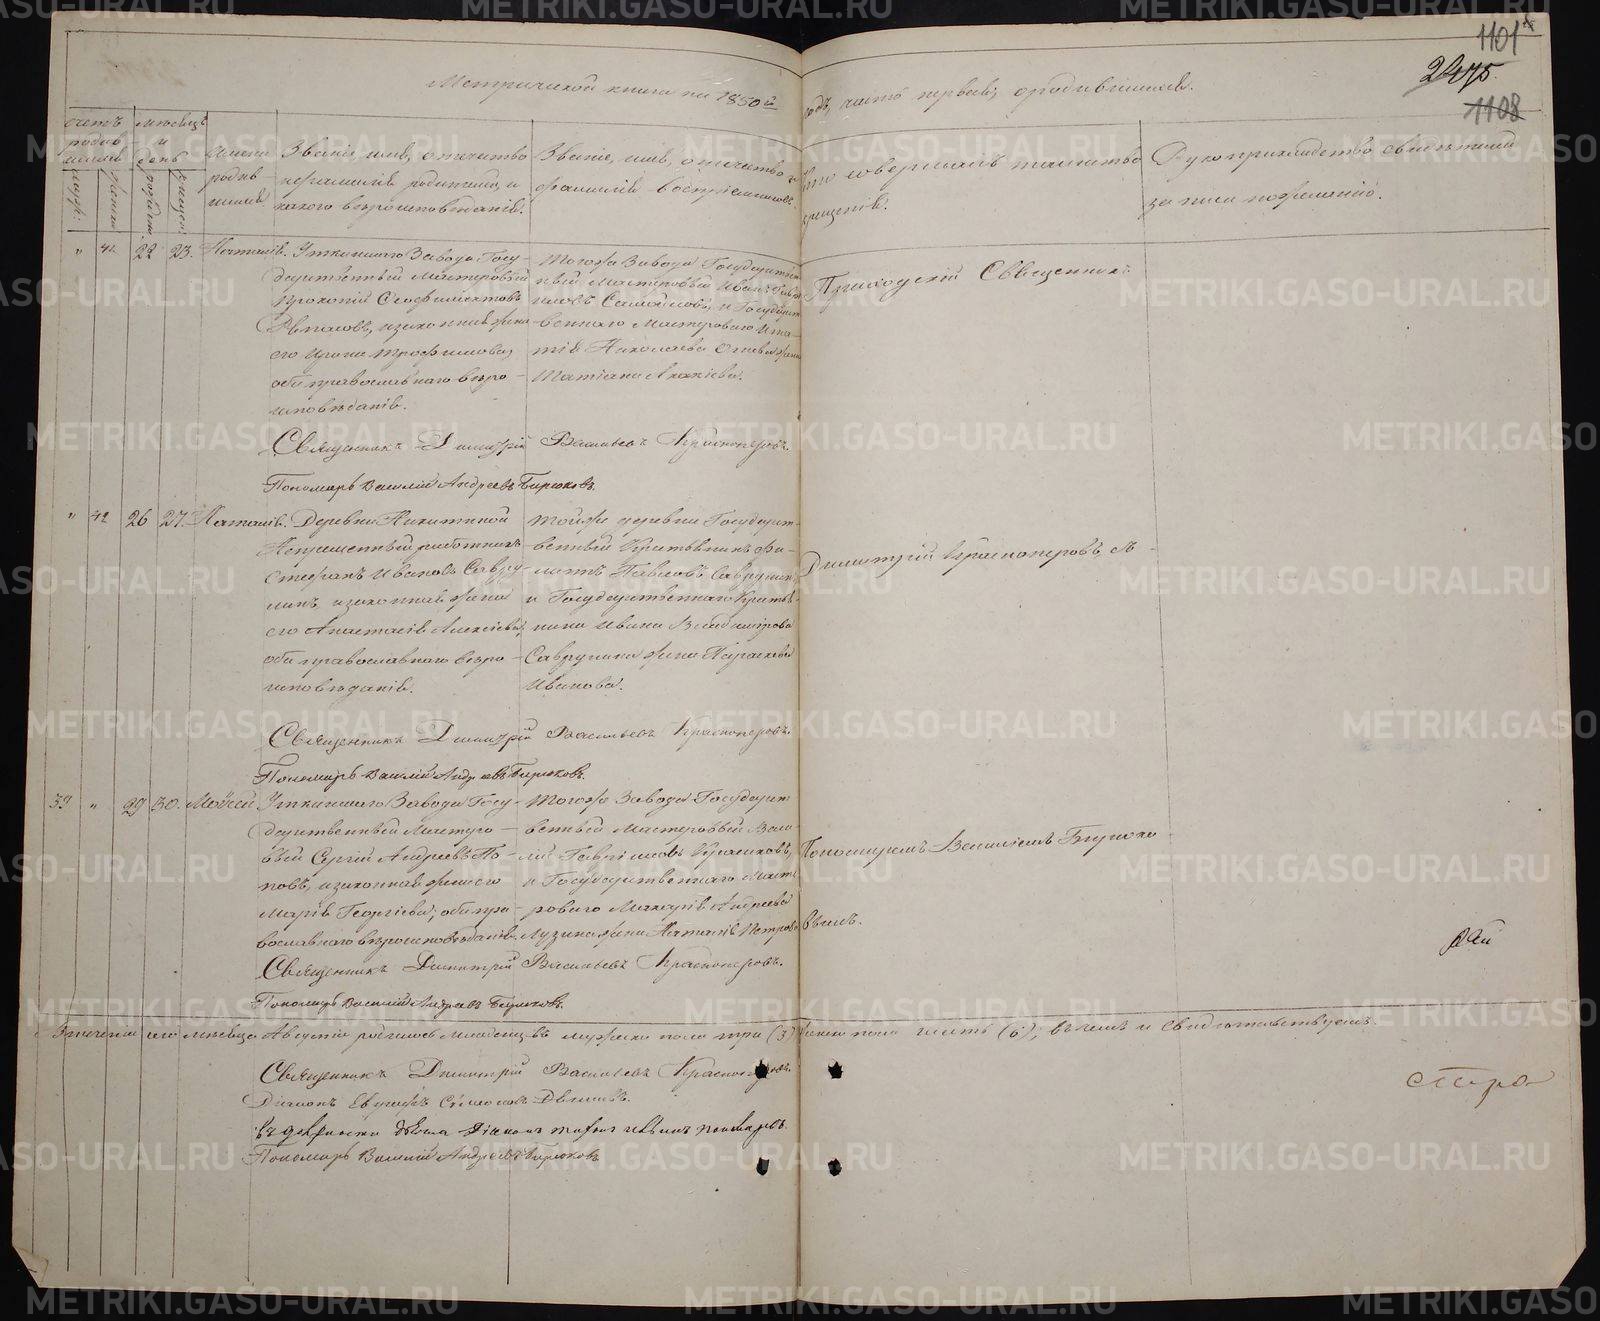 METRIKI.GASO-URAL.RU
1101
2475
1108
Метрической книги на 1850й годъ, часть первая, о родившихся.
Счетъ родив
шихся
Мѣсяцъ и день
рожденія
крещенія
Имена родив
шихся
Званіе, имя, отчество
и фамилія родителей, и
какого вѣроисповѣданія.
Званіе, имя, отчество и
фамилія воспріемниковъ.
Кто совершалъ таинство
крещенія.
Рукоприкладство свидѣтелей
записи по желанію.
" 41 22 23. Наталія.
Уткинскаго Завода Госу-
дарственный Мастеровый
Прокопій Феофилактовъ
и законная жена
его Ирина Трофимова,
оба православнаго вѣро-
исповѣданія.
Тогоже Завода Государствен
ный Мастеровый Иванъ
Самойловъ, и Государст
веннаго Мастероваго Игна-
тія Николаева жена
Татіана
Приходскій Священникъ
Священникъ Димитрій Васильевъ Красноперовъ.
Пономарь Василій Андреевъ Бирюковъ.
" 42 26 27. Наталія.
Деревни Никитиной
Непремѣнный работникъ
Стефанъ Ивановъ Савру-
линъ, и законная жена
его Анастасія Алексіева,
оба православнаго вѣро-
исповѣданія.
Тойже деревни Государст-
венный Крестьянинъ Фи-
липъ Павловъ Саврулин
и Государственнаго Крестья
нина Ивана Владимірова
Саврулина жена Параскева
Иванова.
Димитрій Красноперовъ, съ
Священникъ Димитрій Васильевъ Красноперовъ.
Пономарь Василій Андреевъ Бирюковъ.
39 " 29 30. Моѵсей
Уткинскаго Завода Госу-
дарственный Мастеро-
вый Сергій Андреевъ По-
повъ, и законная жена его
Марія Георгіева; оба пра-
вославнаго вѣроисповѣданія.
Тогоже Завода Государст
венный Мастеровый Васи
лій Гавріиловъ
и Государственнаго Масте
роваго Макарія Андреева
жена Наталія Петрова
Пономаремъ Василіемъ Бирюко
вымъ.
Священникъ Димитрій Васильевъ Красноперовъ.
Пономарь Василій Андреевъ Бирюковъ.
Втеченіи сего мѣсяца Августа родилось младенцевъ мужеска пола три (3) женска пола шесть (6); въ чемъ и свидѣтельствуемъ.
Священникъ Димитрій Васильевъ Красноперовъ.
Діаконъ Евграфъ Симеоновъ
Пономарь Василій Андреевъ Бирюковъ